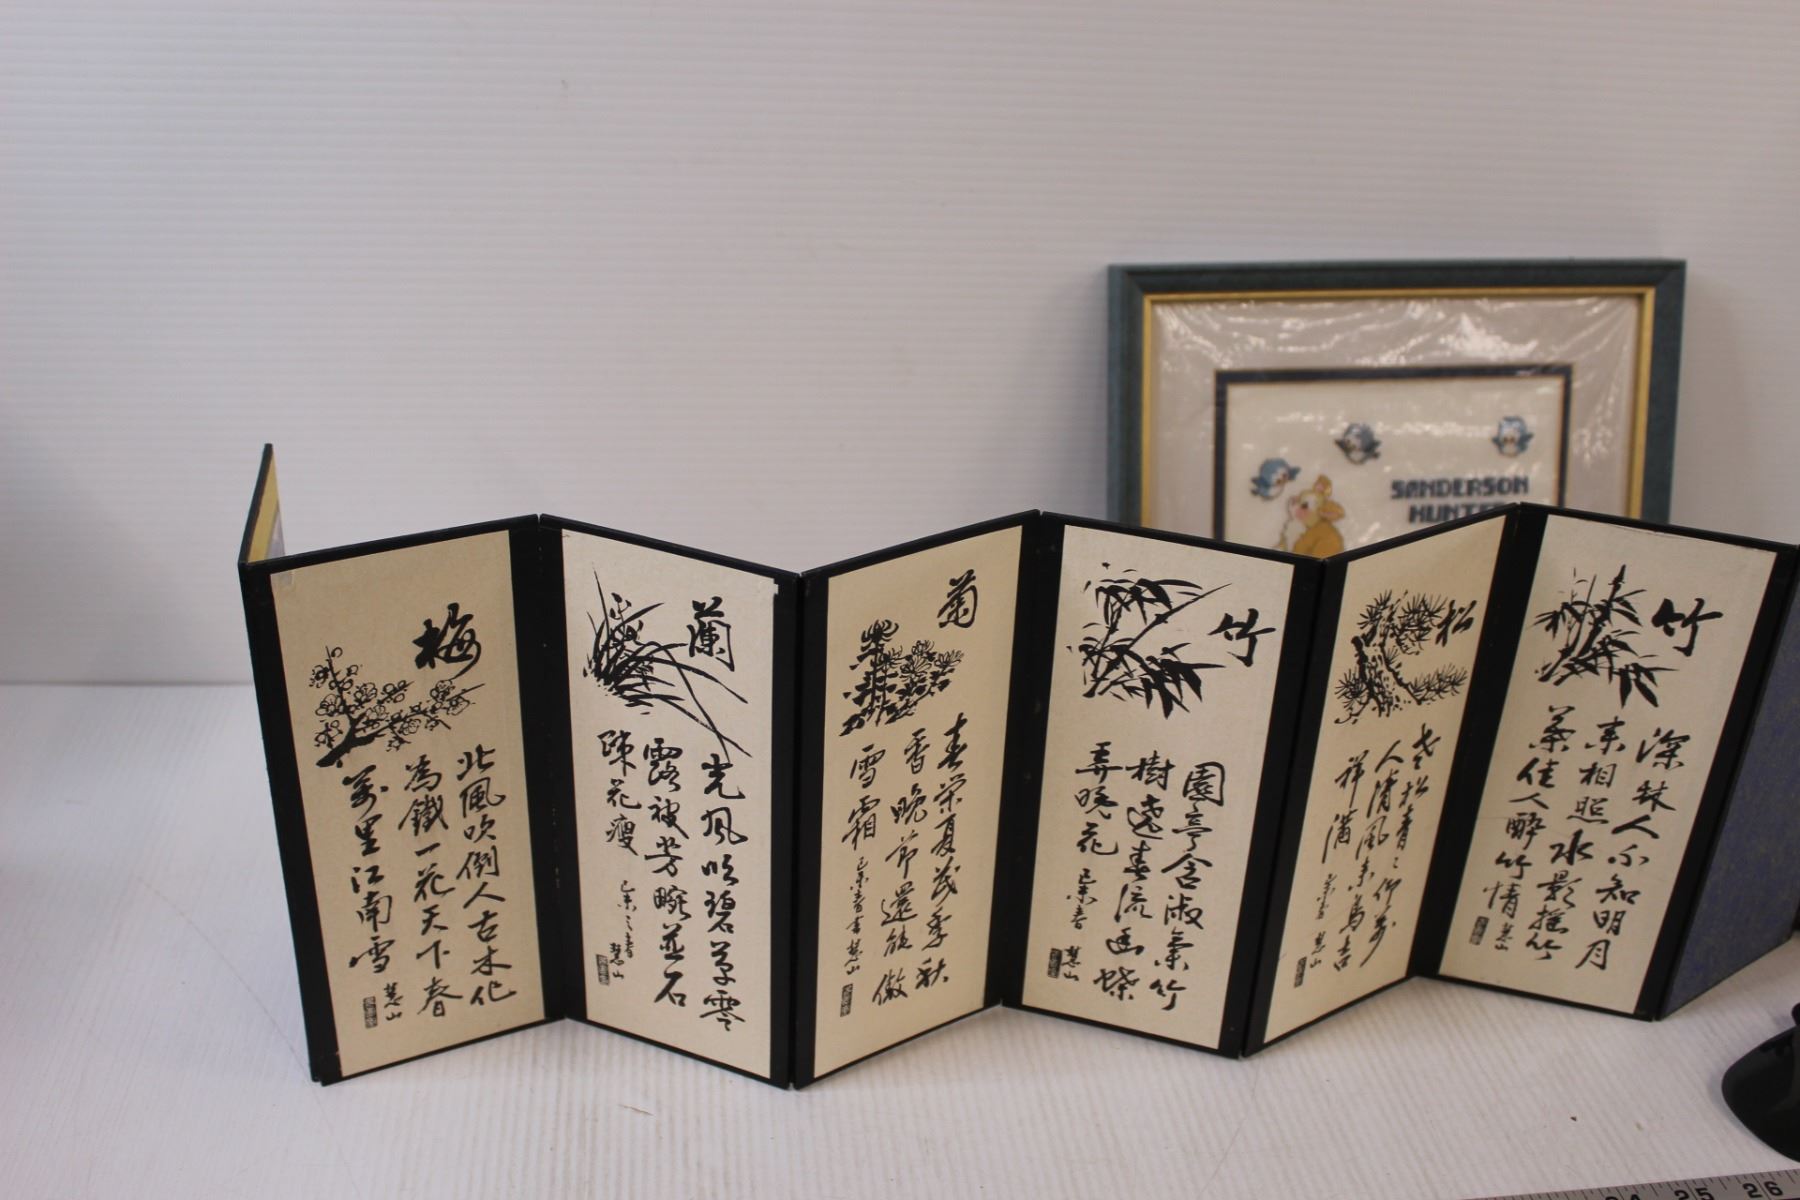 梅
北風吹倒人古木化
為鐵一花天下春
萬里江南雪
慧山
蘭
光風吹碧草零
露被芳畹並石
疎花瘦
己未之春
慧山
菊
春榮夏茂季秋
香晚節還能傲
雪霜
己未春書慧山
竹
園亭含淑氣竹
樹遶春流
弄晚花
己未春
慧山
松
老松青
人清風來萬吉
祥滿
慧山
竹
深林人不知明月
來相照水影搖竹
葉佳人醉竹情
慧山
SANDERSON
HUNTE
25 26